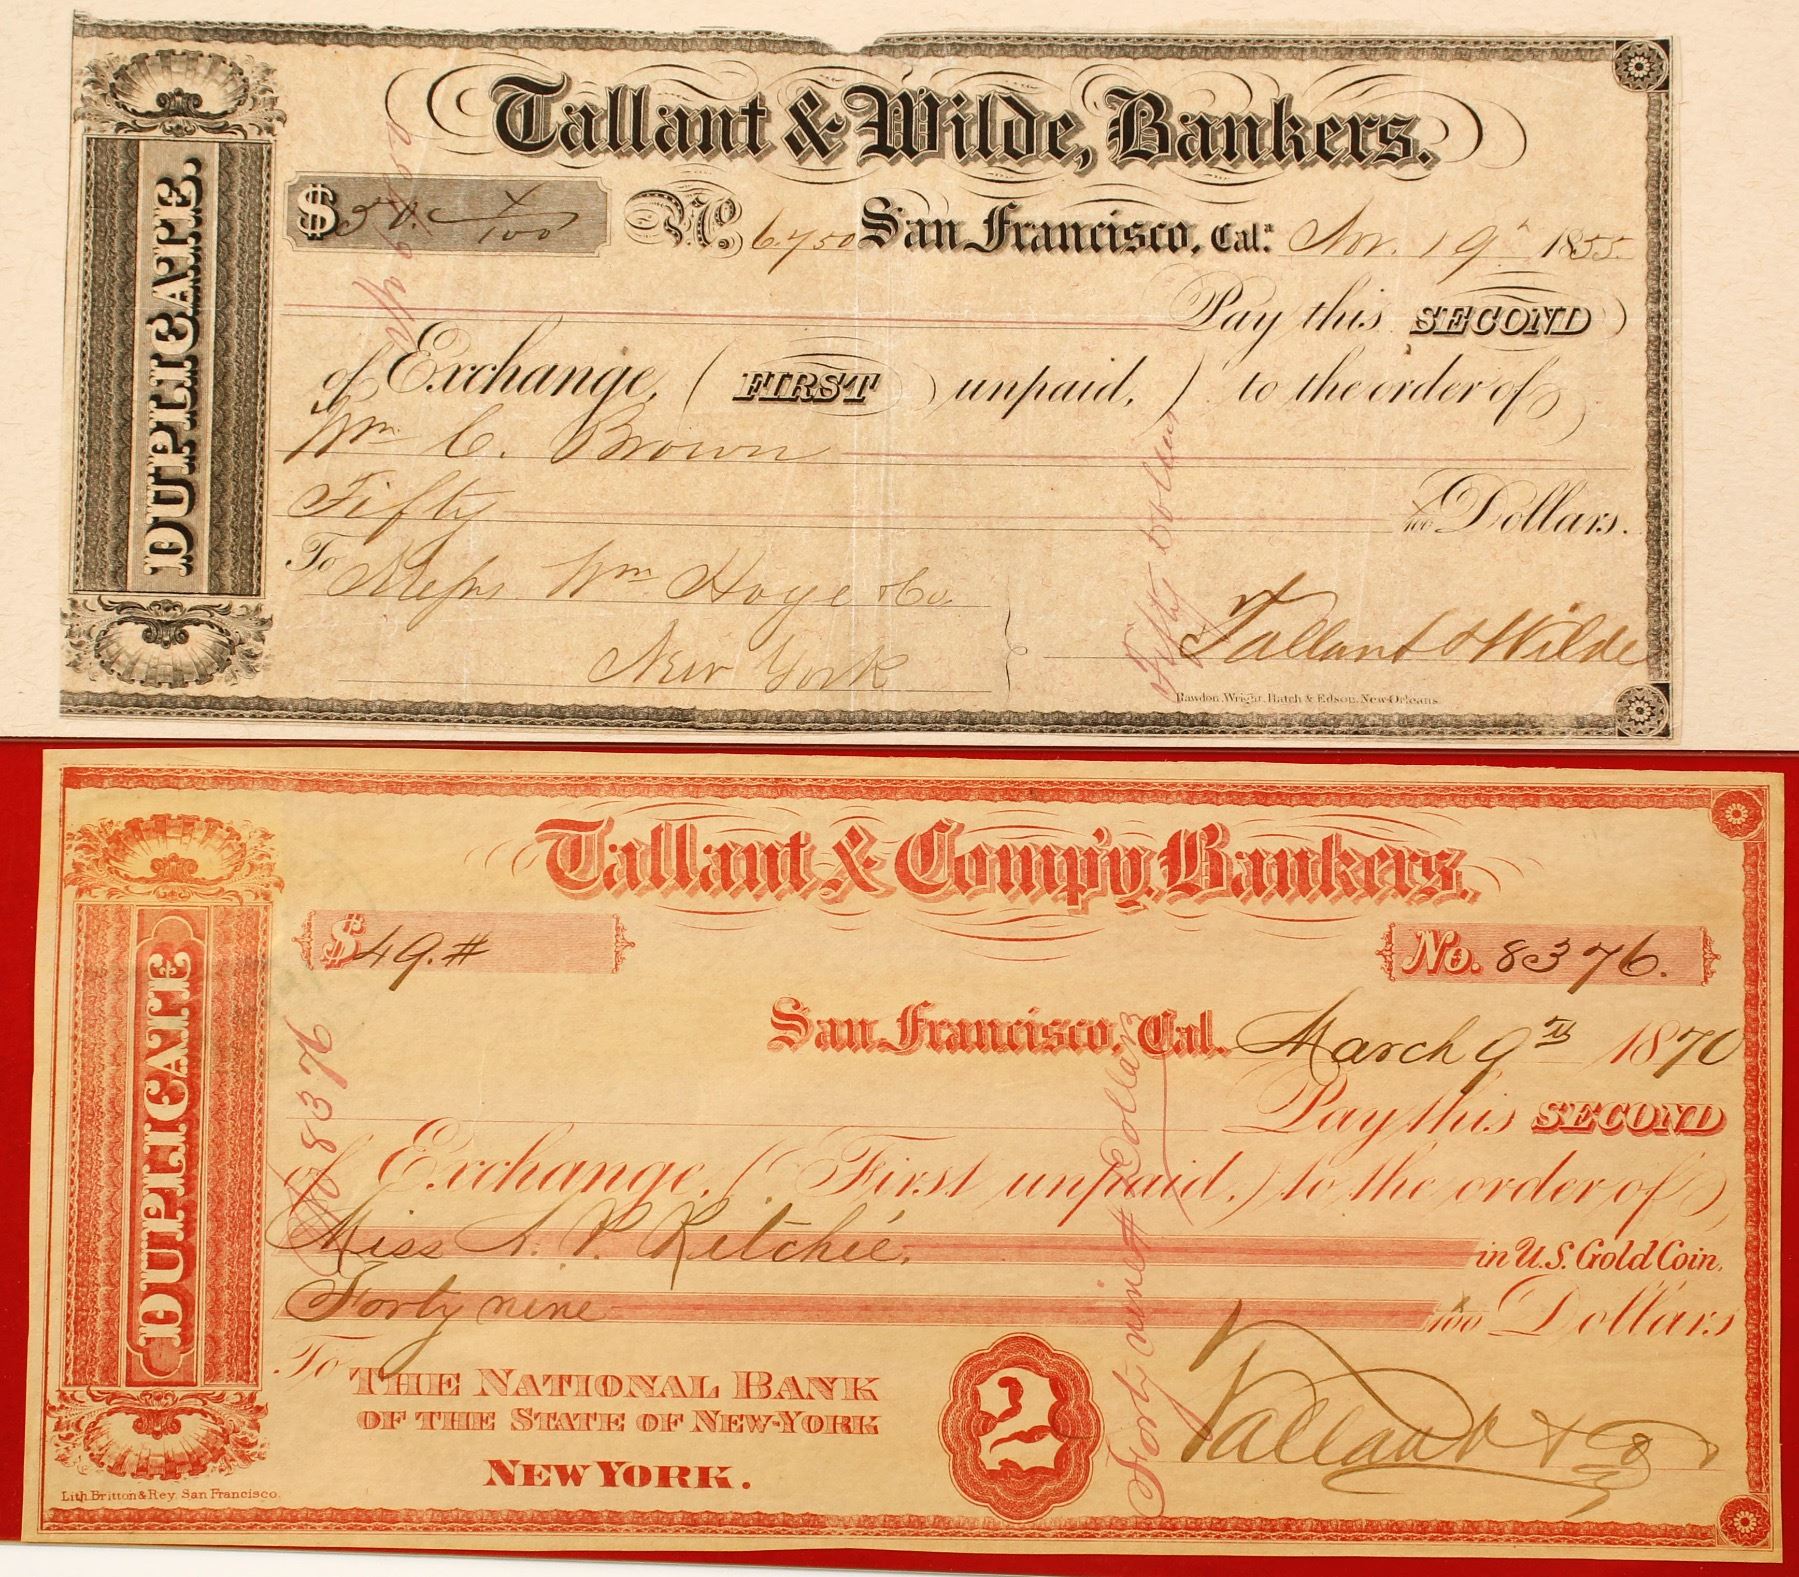 Tallant & Wilde, Bankers.
DUPLICATE.
$50. x/100 No. 6750 San Francisco, Cal.a Nov. 19th 1855.
Pay this SECOND
of Exchange, (FIRST unpaid,) to the order of
Wm C. Brown
Fifty x/100 Dollars.
To Messrs Wm Hoge & Co.
New York
Tallant & Wilde
Fifty Dollars
Rawdon, Wright, Hatch & Edson, New-Orleans.
Tallant & Comp'y, Bankers,
DUPLICATE
$49.# No. 8376.
San Francisco, Cal. March 9th 1870
Pay this SECOND
of Exchange, (First unpaid,) to the order of
Miss A. P. Ritchie,
in U.S. Gold Coin,
Forty nine x/100 Dollars
To THE NATIONAL BANK
OF THE STATE OF NEW-YORK
NEW YORK.
2
Tallant & Co
No 8376
Forty nine # Dollars
Lith. Britton & Rey, San Francisco.